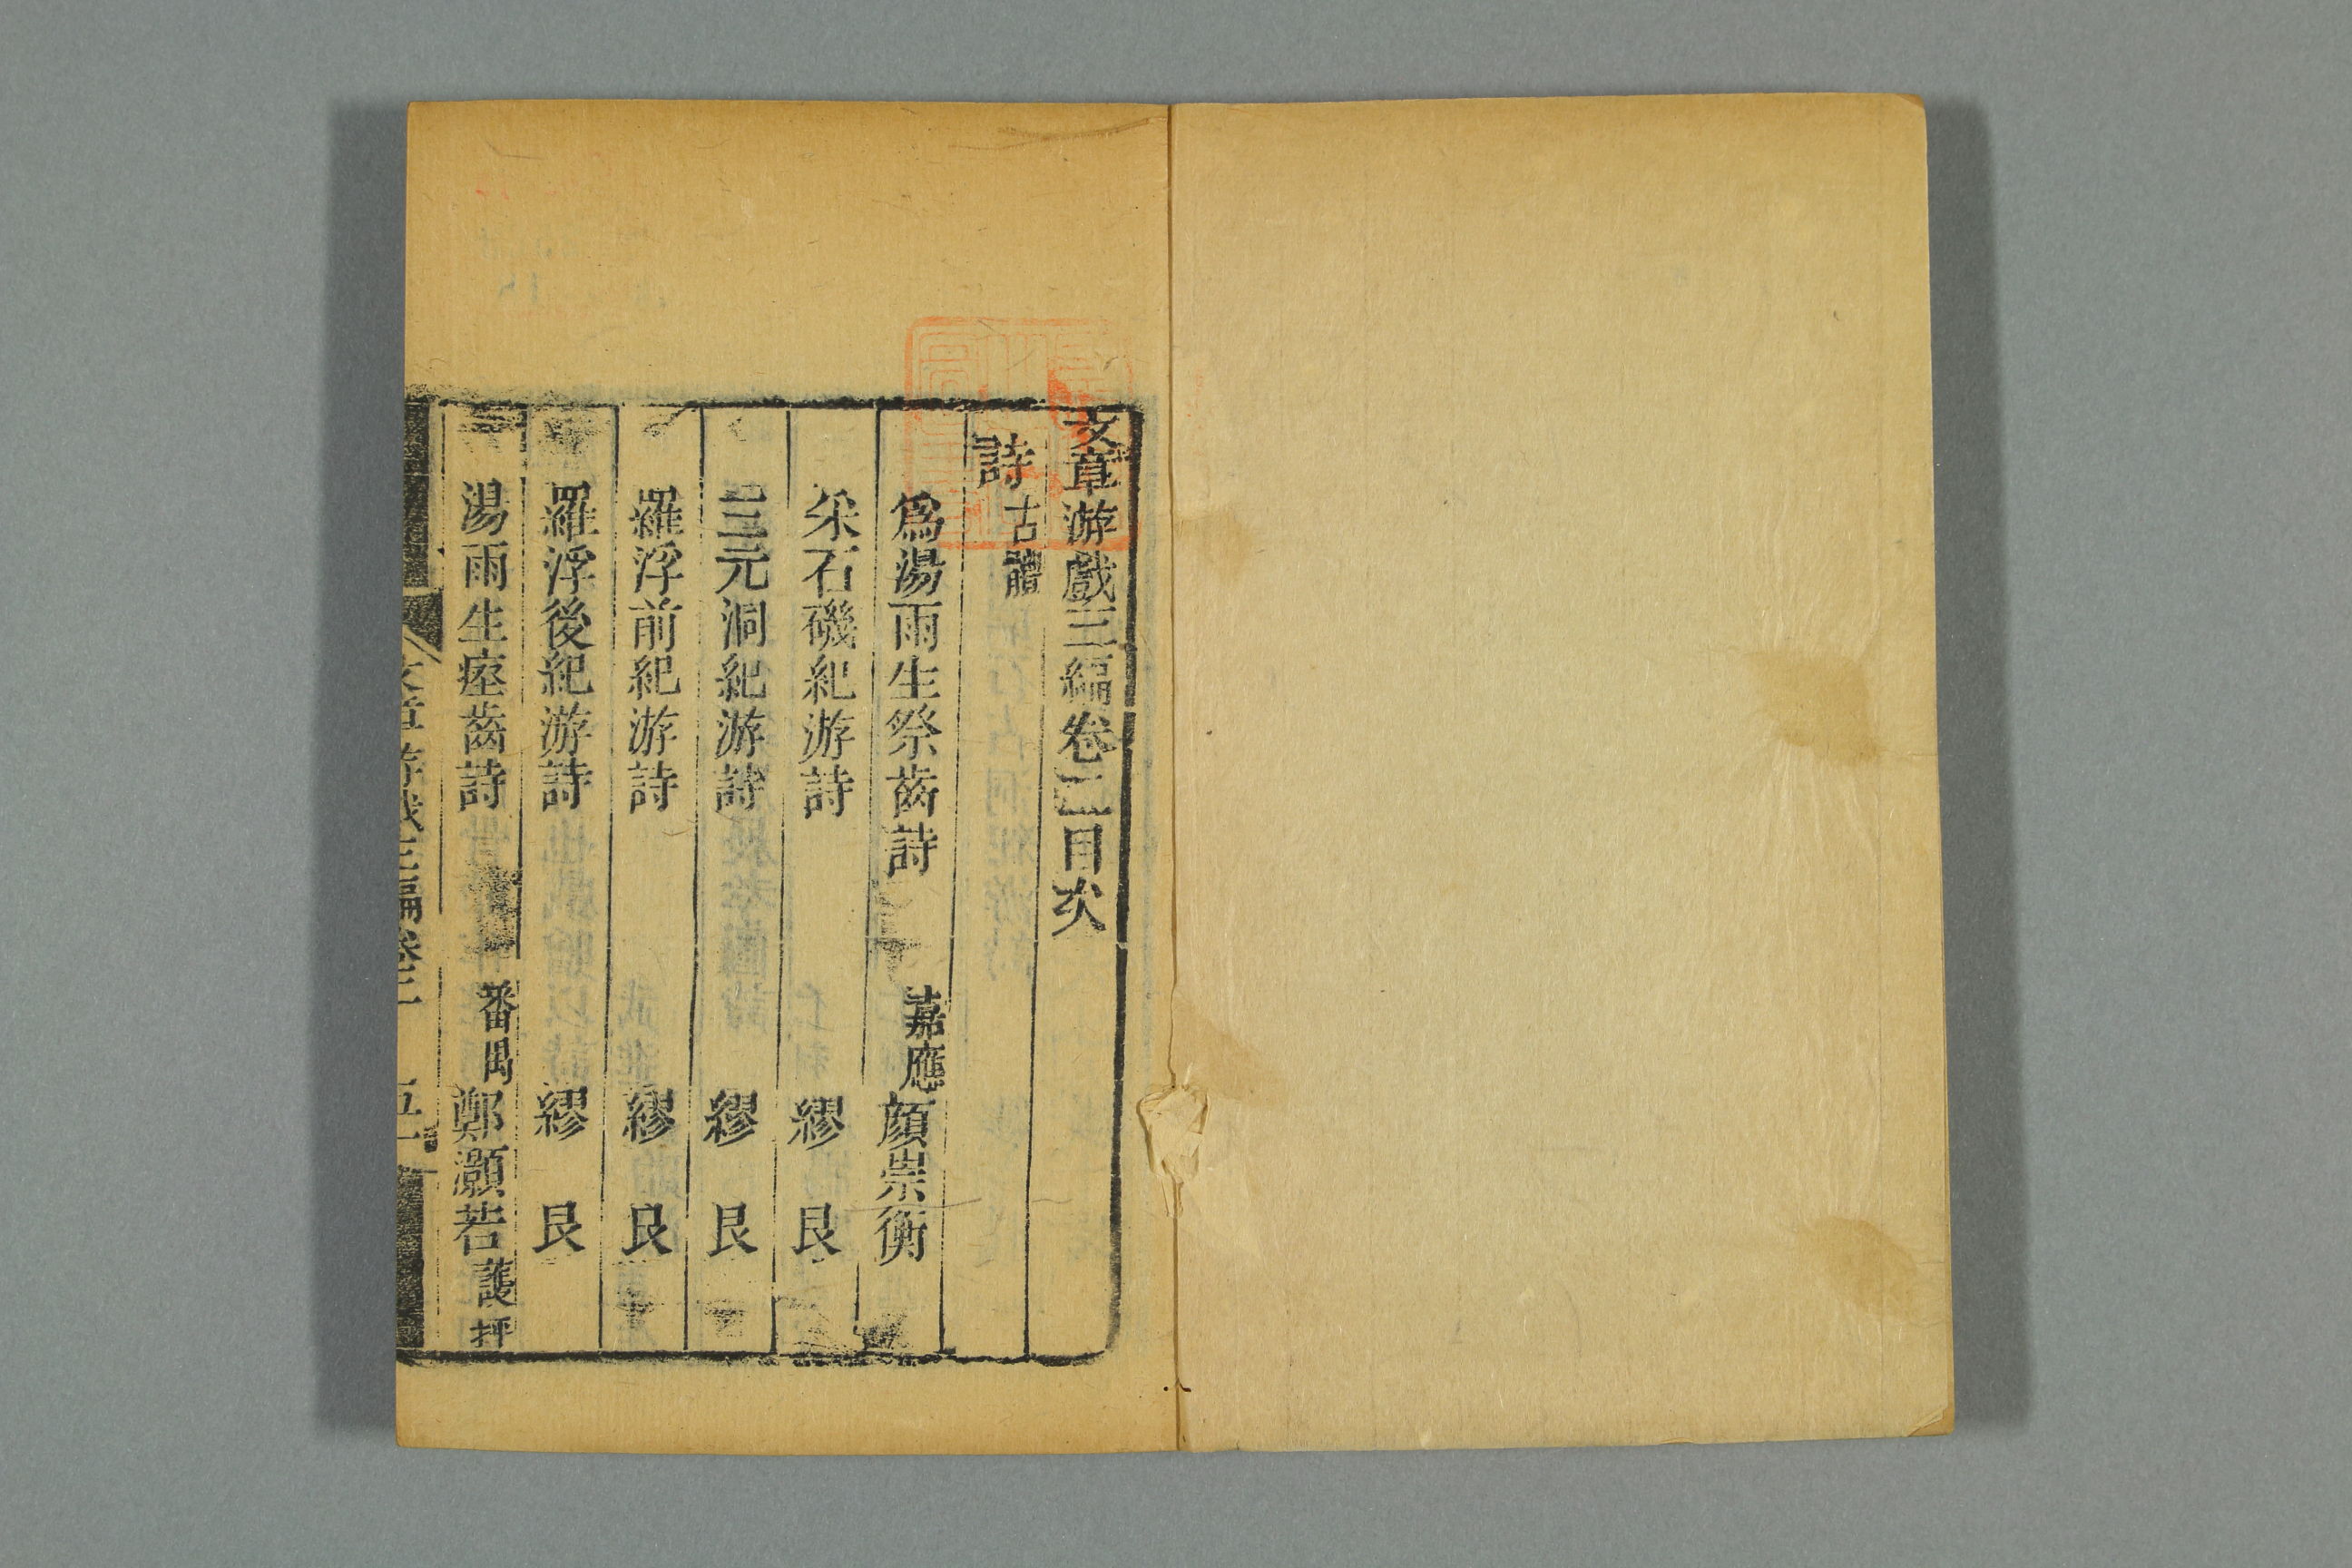 文章游戲三編卷二目次
詩古體
爲湯雨生祭齒詩 嘉應顔崇衡
采石磯紀游詩 繆艮
三元洞紀游詩 繆艮
羅浮前紀游詩 繆艮
羅浮後紀游詩 繆艮
湯雨生瘞齒詩 番禺鄭灝若
文章游戲三編 卷二